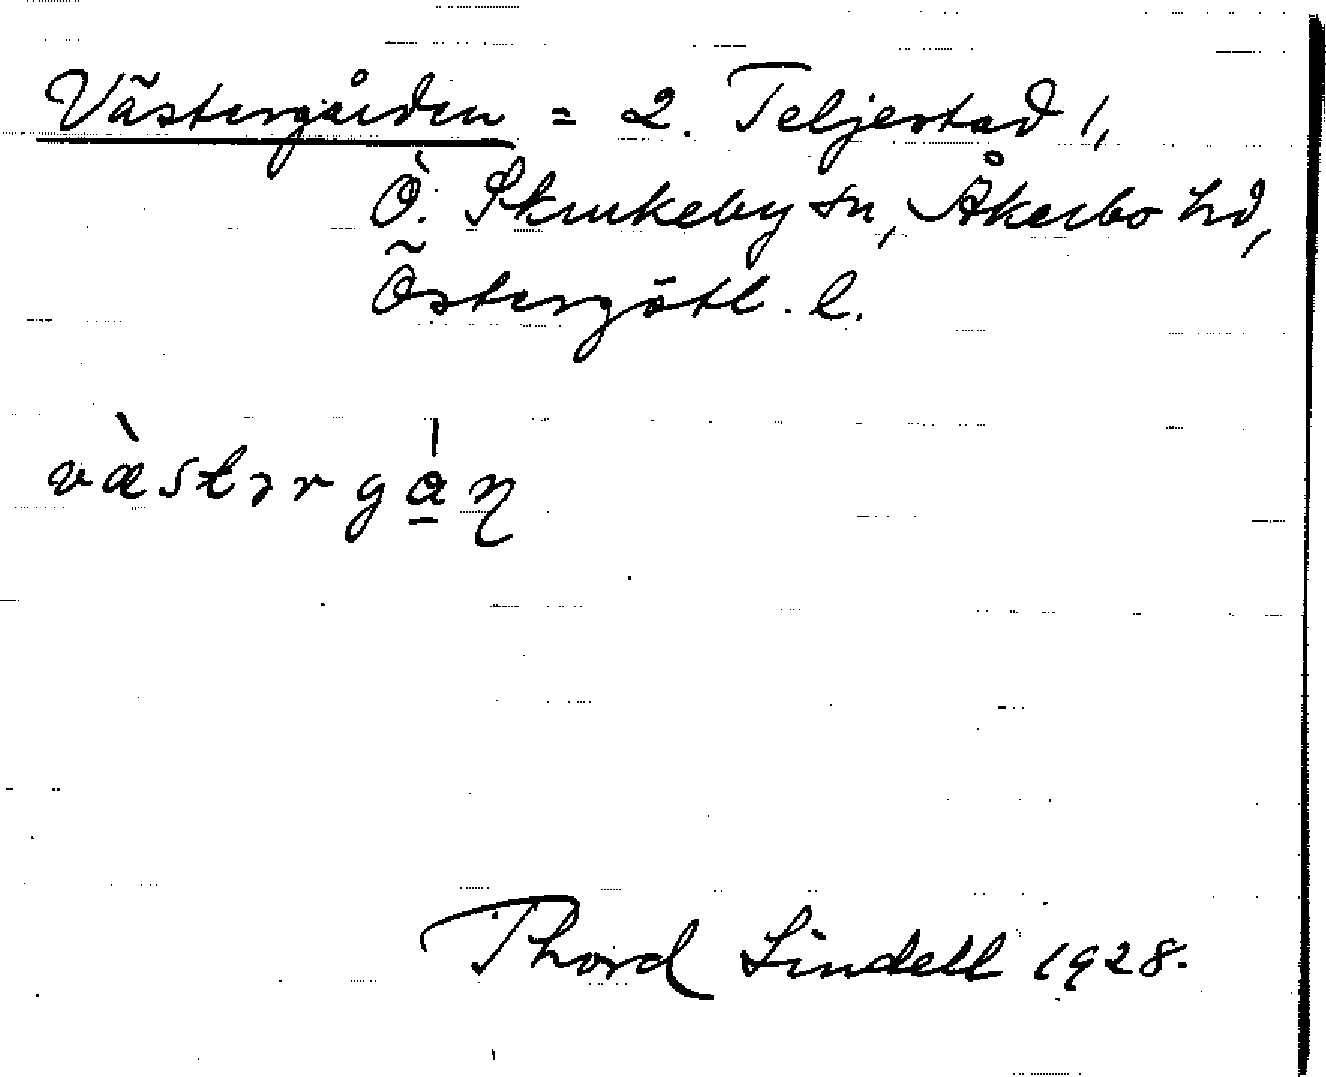 Västergården = 2. Teljestad 1,
Ö. Skrukeby sn, Åkerbo hd,
Östergötl. l.
væ̀stərgá̲ɳ
Thord Lindell 1928.